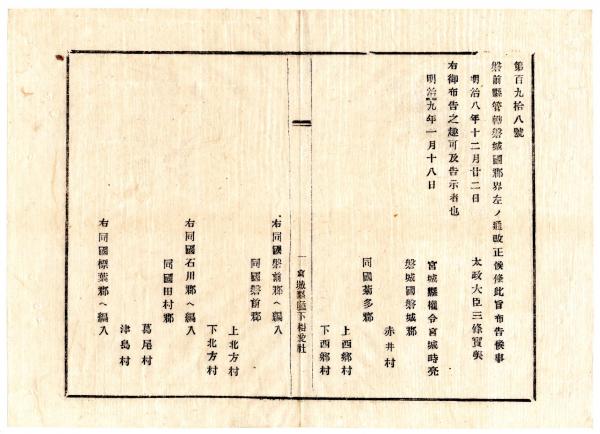 第百九拾八號
磐前縣管轄磐城國郡界左ノ通改正候條此旨布告候事
明治八年十二月廿二日
太政大臣三條實美
右御布告之趣可及告示者也
明治九年一月十八日
宮城縣權令宮城時亮
磐城國磐城郡
赤井村
同國菊多郡
上西郷村
下西郷村
宮城縣縣下相愛社
右同國磐前郡ヘ編入
同國磐前郡
上北方村
下北方村
右同國石川郡ヘ編入
同國田村郡
葛尾村
津島村
右同國標葉郡ヘ編入